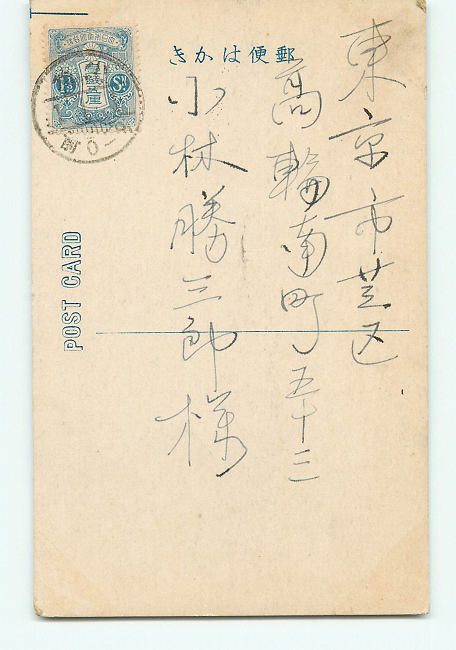 きかは便郵
東京市芝区
高輪南町五十三
小林勝三郎様
POST CARD
1½
Sn